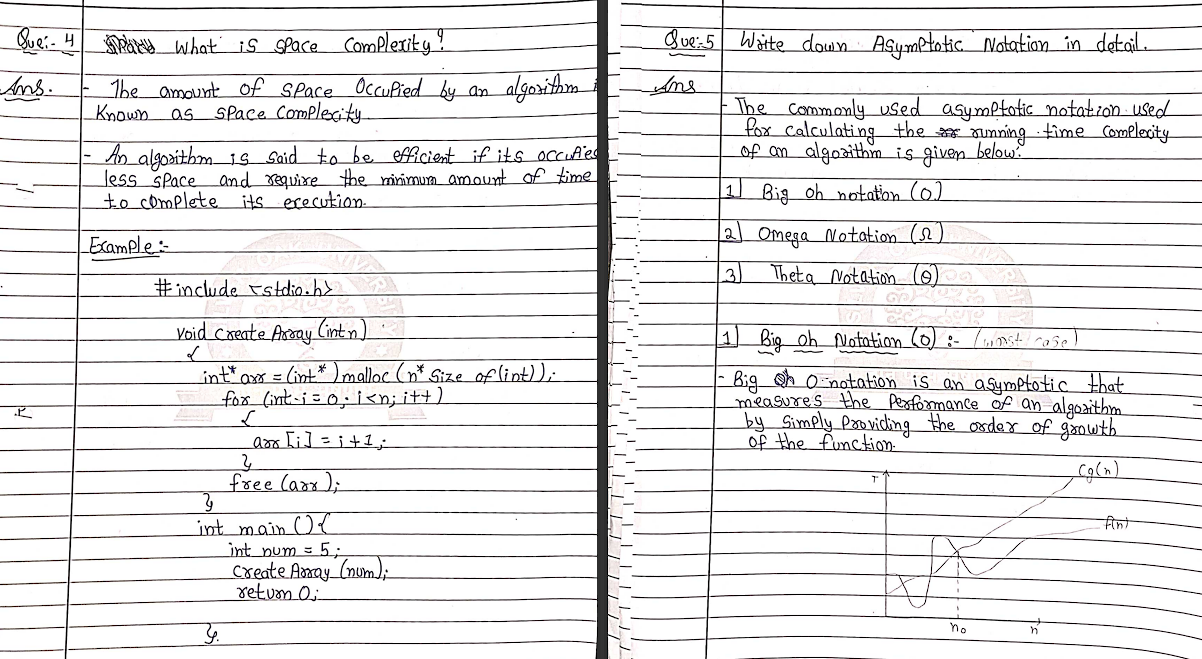 Que:- 4 What is space complexity?
Ans. - The amount of space occupied by an algorithm is
known as space complexity.
- An algorithm is said to be efficient if its occupies
less space and require the minimum amount of time
to complete its execution.
Example:-
#include <stdio.h>
void create Array (int n)
{
int* arr = (int*) malloc (n* size of (int));
for (int i = 0; i<n; i++)
{
arr [i] = i+1;
}
free (arr);
}
int main () {
int num = 5;
create Array (num);
return 0;
}
Que:-5 Write down Asymptotic Notation in detail.
Ans
- The commonly used asymptotic notation used
for calculating the running time complexity
of an algorithm is given below:
1] Big oh notation (O)
2] Omega Notation (Ω)
3] Theta Notation (θ)
1] Big oh Notation (O) :- (worst case)
- Big O notation is an asymptotic that
measures the performance of an algorithm
by simply providing the order of growth
of the function.
T
cg(n)
f(n)
n₀ n